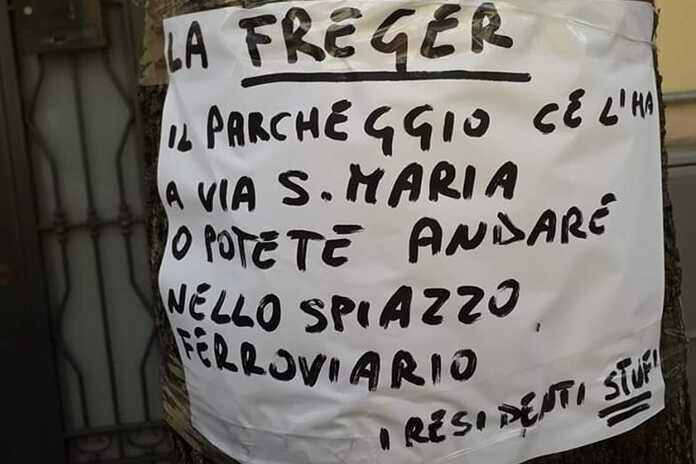 LA FREGER
IL PARCHEGGIO CE L'HA
A VIA S. MARIA
O POTETE ANDARE
NELLO SPIAZZO
FERROVIARIO
I RESIDENTI STUFI